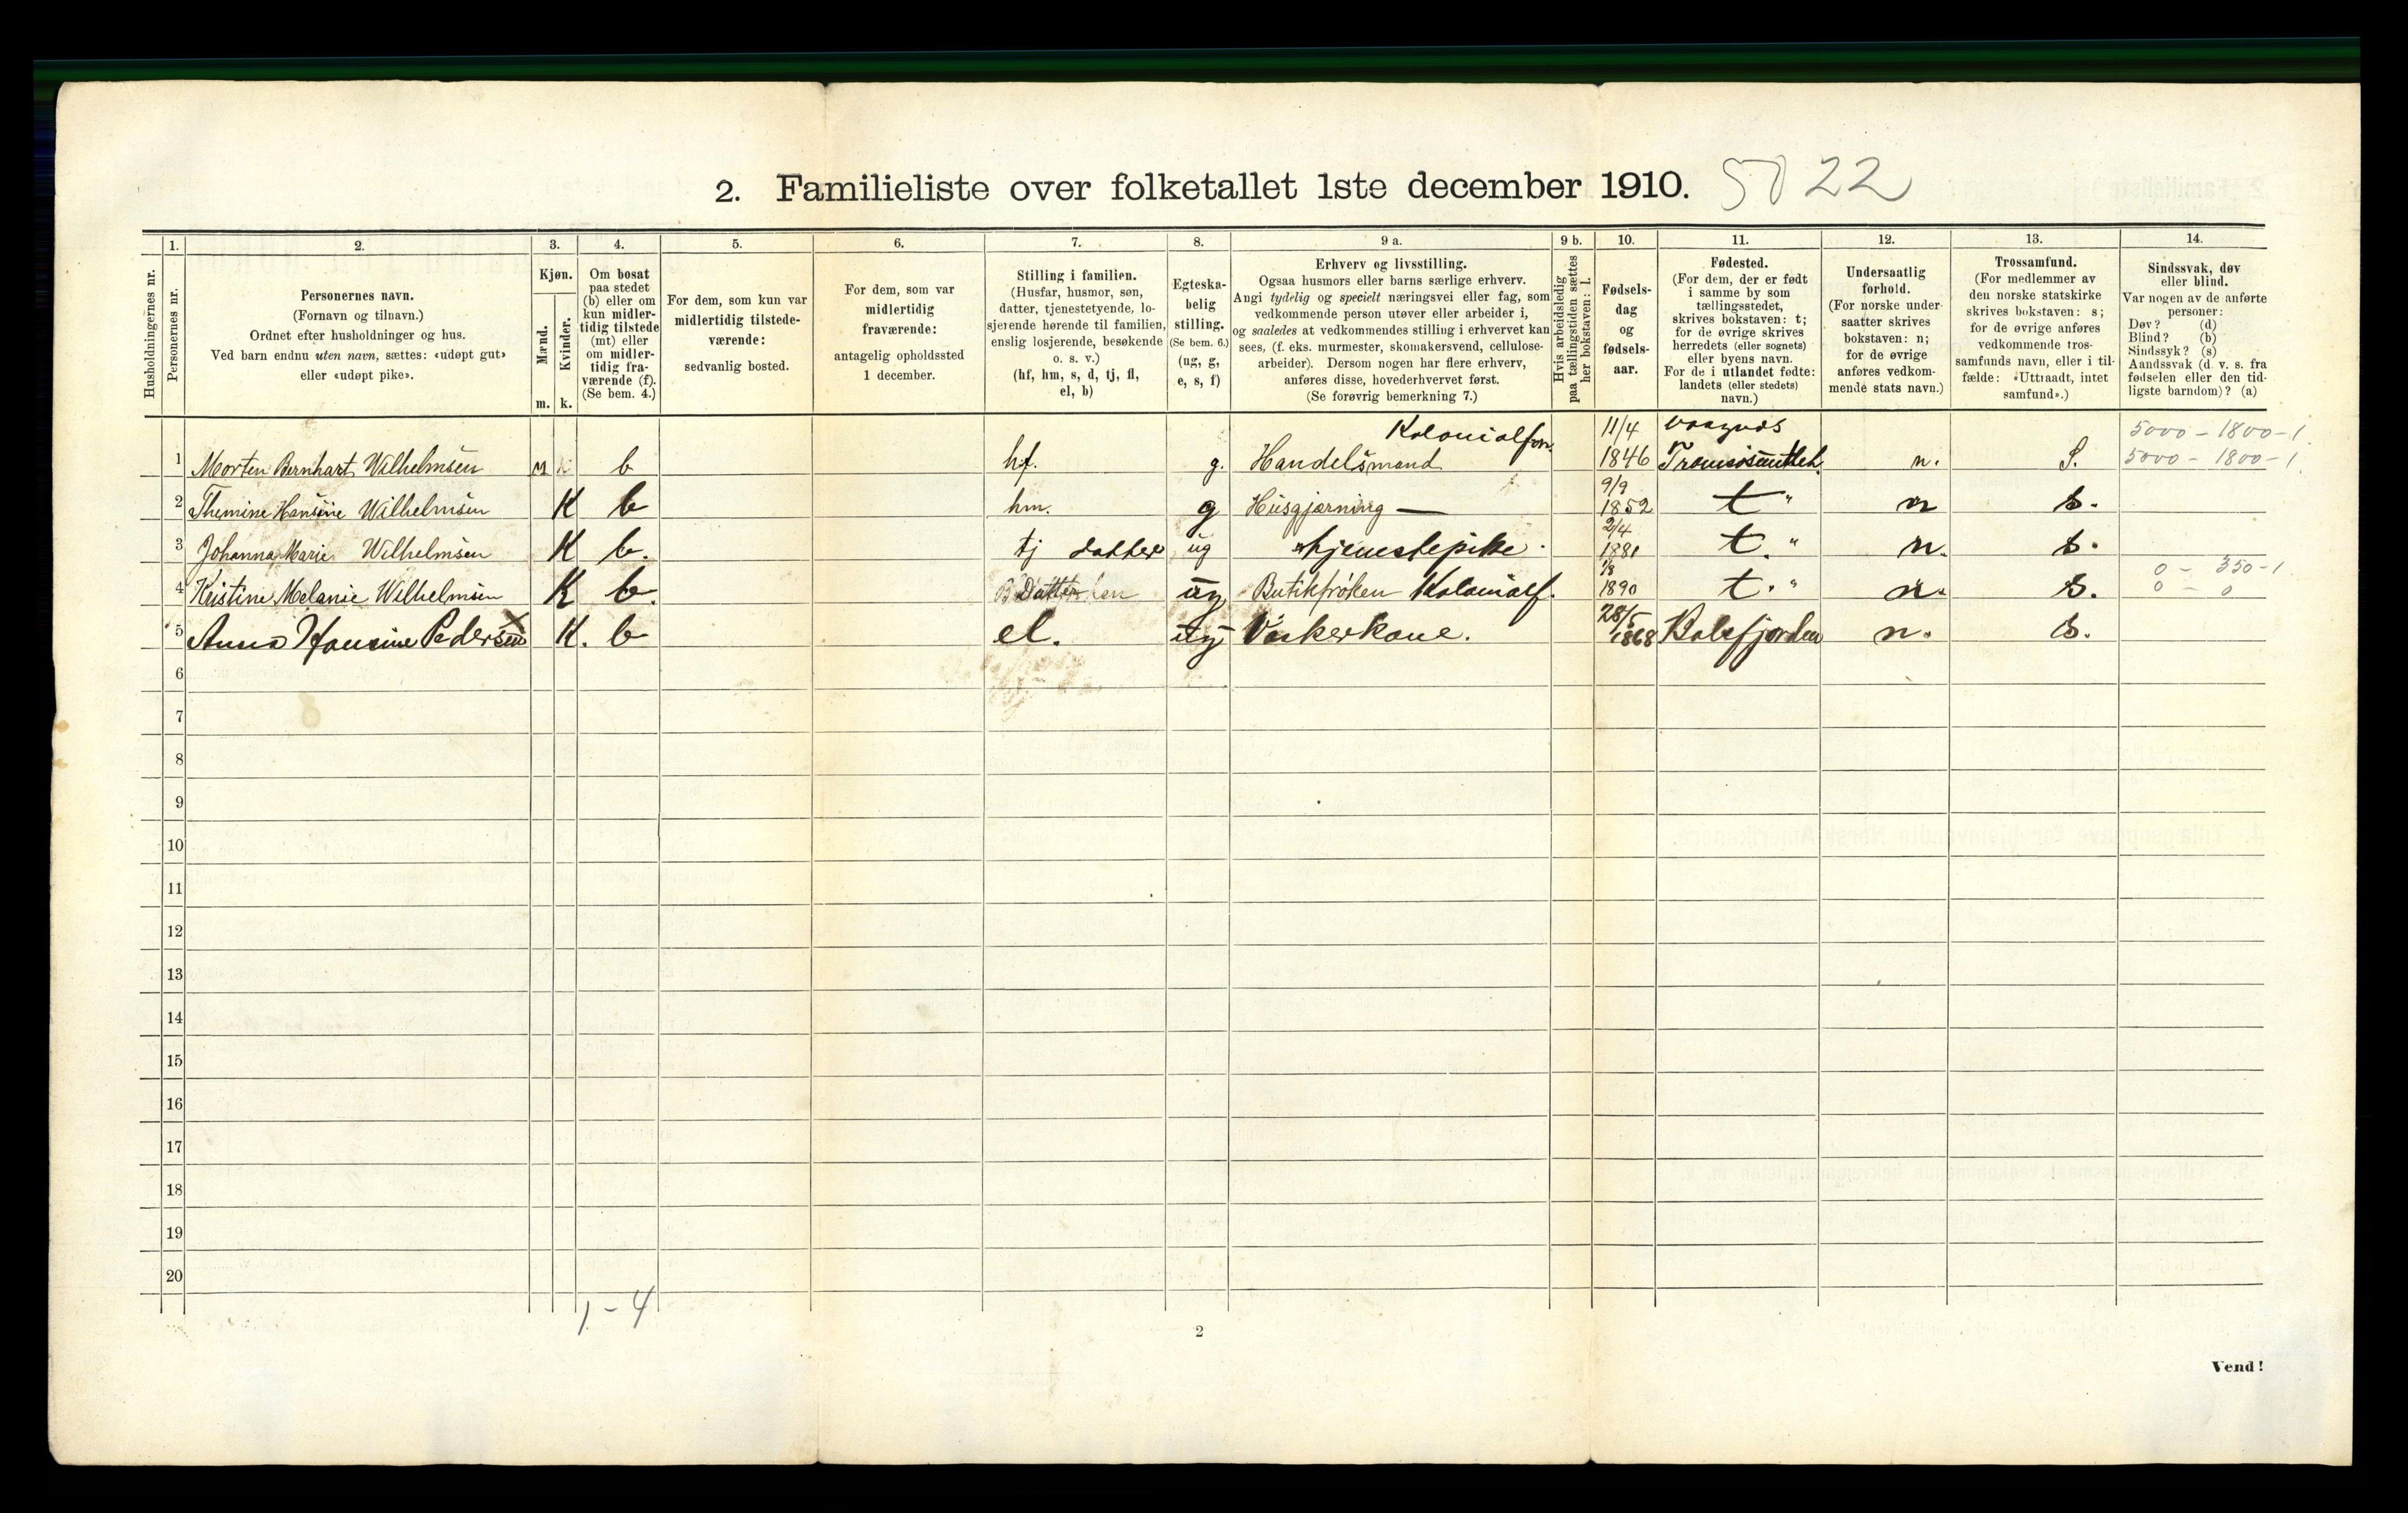 2. Familieliste over folketallet 1ste december 1910. 5022
Husholdningernes nr.
1.
Personernes nr.
2.
Personernes navn.
(Fornavn og tilnavn.)
Ordnet efter husholdninger og hus.
Ved barn endnu uten navn, sættes: «udøpt gut»
eller «udøpt pike».
3.
Kjøn.
Mænd.
Kvinder.
m. k.
4.
Om bosat
paa stedet
(b) eller om
kun midler-
tidig tilstede
(mt) eller
om midler-
tidig fra-
værende (f).
(Se bem. 4.)
5.
For dem, som kun var
midlertidig tilstede-
værende:
sedvanlig bosted.
6.
For dem, som var
midlertidig
fraværende:
antagelig opholdssted
1 december.
7.
Stilling i familien.
(Husfar, husmor, søn,
datter, tjenestetyende, lo-
sjerende hørende til familien,
enslig losjerende, besøkende
o. s. v.)
(hf, hm, s, d, tj, fl,
el, b)
8.
Egteska-
belig
stilling.
(Se bem. 6.)
(ug, g,
e, s, f)
9 a.
Erhverv og livsstilling.
Ogsaa husmors eller barns særlige erhverv.
Angi tydelig og specielt næringsvei eller fag, som
vedkommende person utøver eller arbeider i,
og saaledes at vedkommendes stilling i erhvervet kan
sees, (f. eks. murmester, skomakersvend, cellulose-
arbeider). Dersom nogen har flere erhverv,
anføres disse, hovederhvervet først.
(Se forøvrig bemerkning 7.)
9 b.
Hvis arbeidsledig
paa tællingstiden sættes
her bokstaven: l.
10.
Fødsels-
dag
og
fødsels-
aar.
11.
Fødested.
(For dem, der er født
i samme by som
tællingsstedet,
skrives bokstaven: t;
for de øvrige skrives
herredets (eller sognets)
eller byens navn.
For de i utlandet fødte:
landets (eller stedets)
navn.)
12.
Undersaatlig
forhold.
(For norske under-
saatter skrives
bokstaven: n;
for de øvrige
anføres vedkom-
mende stats navn.)
13.
Trossamfund.
(For medlemmer av
den norske statskirke
skrives bokstaven: s;
for de øvrige anføres
vedkommende tros-
samfunds navn, eller i til-
fælde: «Uttraadt, intet
samfund».)
14.
Sindssvak, døv
eller blind.
Var nogen av de anførte
personer:
Døv? (d)
Blind? (b)
Sindssyk? (s)
Aandssvak (d. v. s. fra
fødselen eller den tid-
ligste barndom)? (a)
Kolonialfor. 11/4 5000 - 1800 - 1.
1 Morten Bernhart Wilhelmsen M b hf. g. Handelsmand 1846 n. S. 5000 - 1800 - 1.
9/9
2 Themine Hansine Wilhelmsen K b hm. g Husgjærning — 1852 t " n s.
2/4
3 Johanna Marie Wilhelmsen K b. tj datter ug tjenestepike. 1881 t. " n. s.
1/8 0 - 350 - 1
4 Kristine Melanie Wilhelmsen K b. Datter ug Butikfrøken Kolonialf. 1890 t. " n. s. 0 - 0
28/5
5 Anna Hansine Pedersen X K. b el. ug Vaskerkone. 1868 Balsfjorden n. s.
6
7
8
9
10
11
12
13
14
15
16
17
18
19
20
1 - 4
2
Vend!